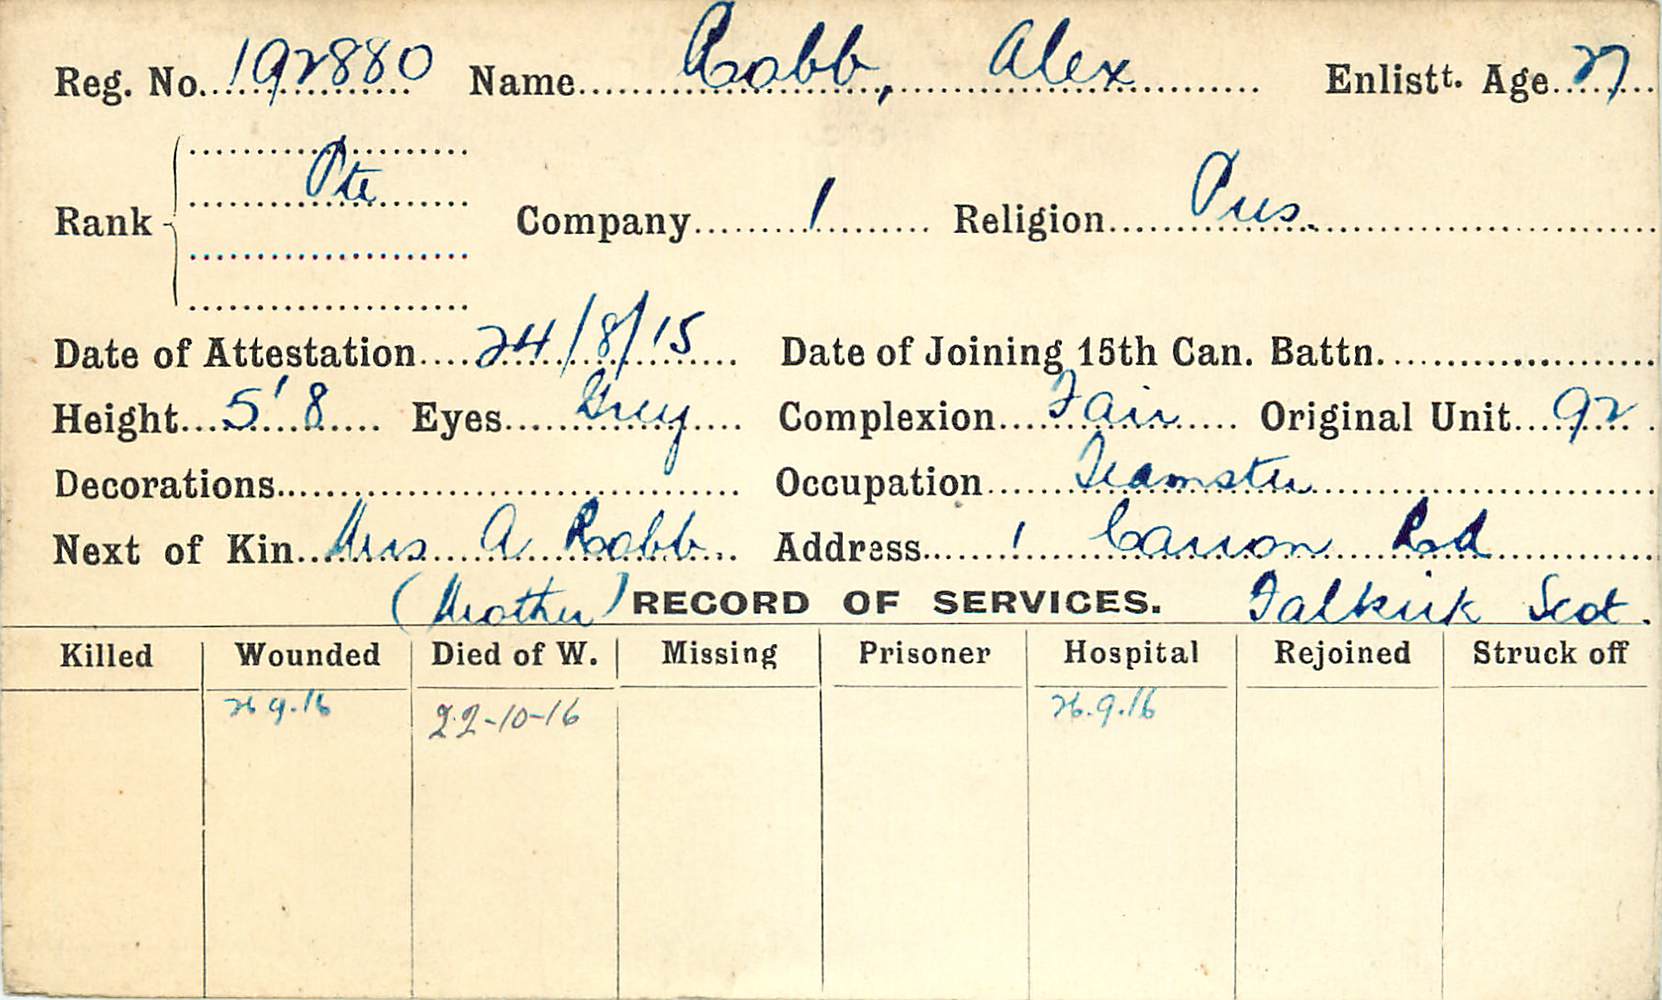 Reg. No. 192880 Name Robb, Alex Enlistt. Age 27
Rank Pte Company 1 Religion Pres.
Date of Attestation 24/8/15 Date of Joining 15th Can. Battn.
Height 5'8 Eyes Grey Complexion Fair Original Unit 92
Decorations Occupation Teamster
Next of Kin Mrs A Robb Address 1 Carron Rd
(Mother) RECORD OF SERVICES. Falkirk Scot.
Killed Wounded Died of W. Missing Prisoner Hospital Rejoined Struck off
26 9.16 22-10-16 26.9.16